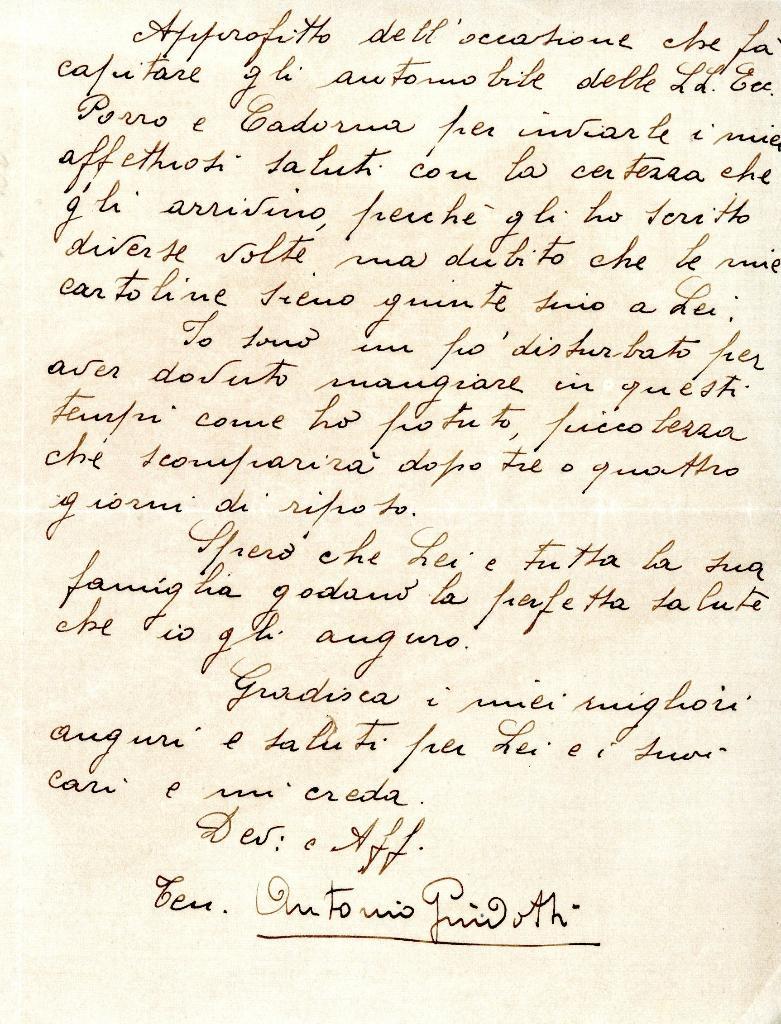 Approfitto dell'occasione che fà
capitare gli automobile delle LL. Ecc.
Porro e Cadorna per inviarle i miei
affettuosi saluti con la certezza che
gli arrivino, perché gli ho scritto
diverse volte ma dubito che le mie
cartoline sieno giunte sino a Lei.
Io sono un po' disturbato per
aver dovuto mangiare in questi
tempi come ho potuto, piccolezza
che scomparirà dopo tre o quattro
giorni di riposo.
Spero che Lei e tutta la sua
famiglia godano la perfetta salute
che io gli auguro.
Gradisca i miei migliori
auguri e saluti per Lei e i suoi
cari e mi creda.
Dev: e Aff.
Ten. Antonio Guidotti